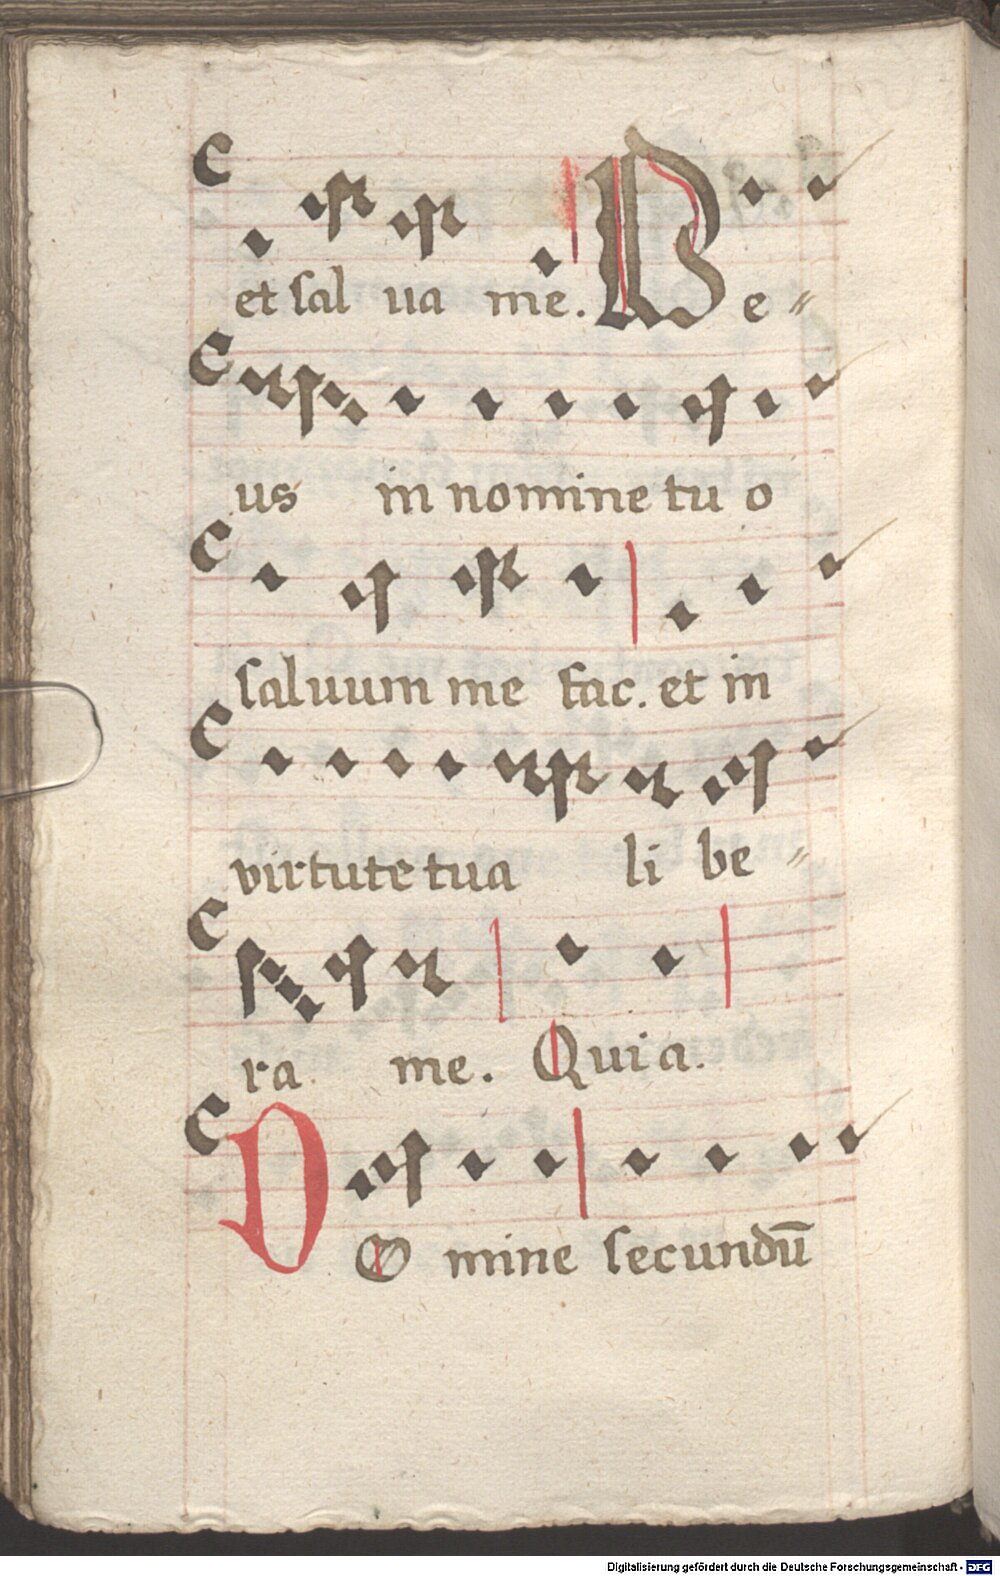 et sal ua me. De-
us in nomine tu o
saluum me fac. et in
virtute tua li be-
ra me. Quia.
DO mine secundū
Digitalisierung gefördert durch die Deutsche Forschungsgemeinschaft - DFG